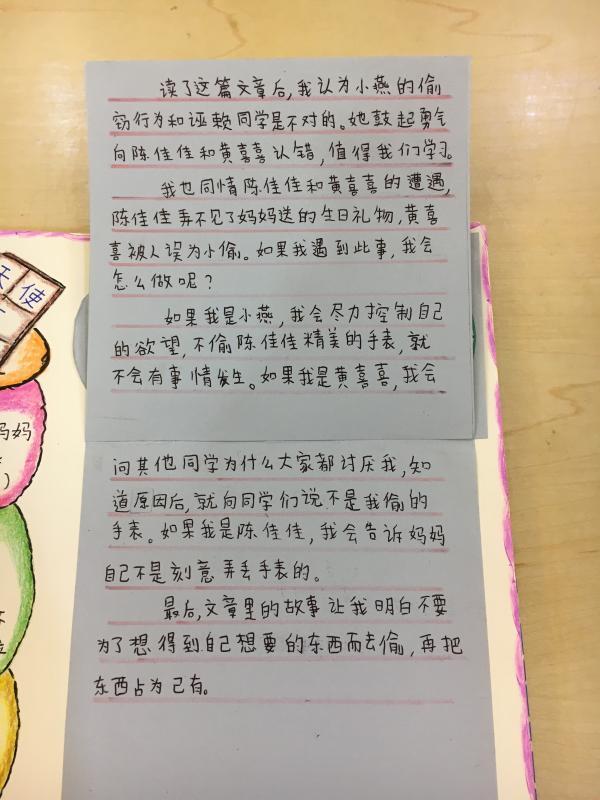 读了这篇文章后，我认为小燕的偷
窃行为和诬赖同学是不对的。她鼓起勇气
向陈佳佳和黄喜喜认错，值得我们学习。
我也同情陈佳佳和黄喜喜的遭遇，
陈佳佳弄不见了妈妈送的生日礼物，黄喜
喜被人误为小偷。如果我遇到此事，我会
怎么做呢？
如果我是小燕，我会尽力控制自己
的欲望，不偷陈佳佳精美的手表，就
不会有事情发生。如果我是黄喜喜，我会
问其他同学为什么大家都讨厌我，知
道原因后，就向同学们说不是我偷的
手表。如果我是陈佳佳，我会告诉妈妈
自己不是刻意弄丢手表的。
最后，文章里的故事让我明白不要
为了想得到自己想要的东西而去偷，再把
东西占为己有。
天使
妈妈